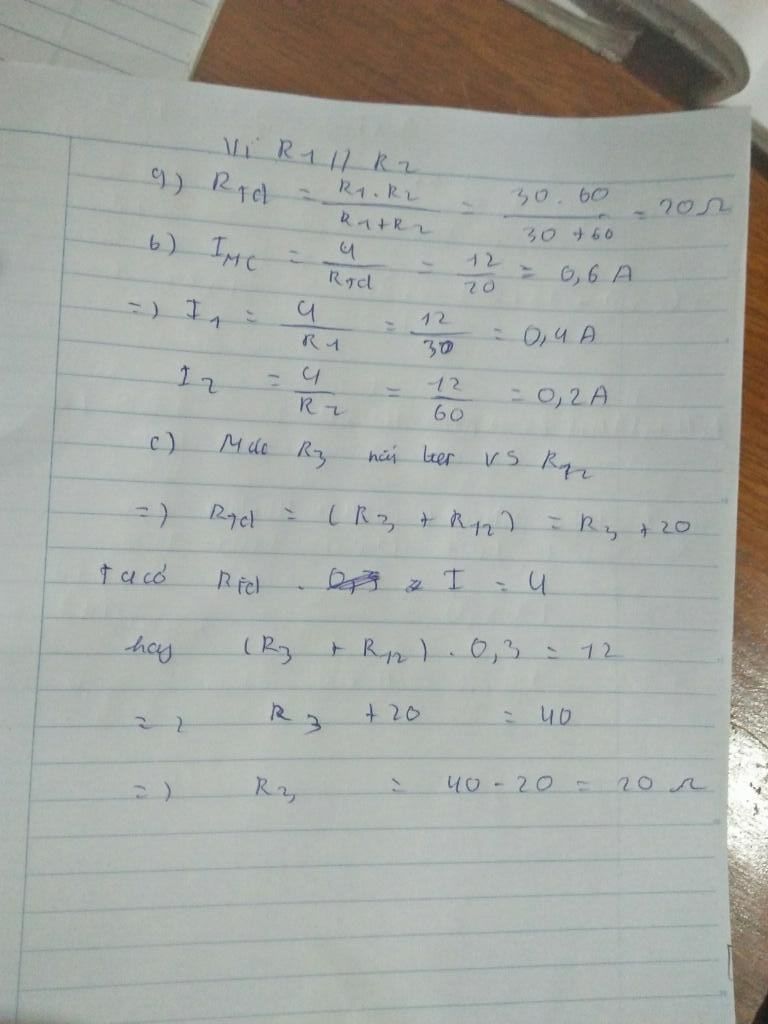 Vì R1 // R2
a) Rtđ = R1.R2 / R1+R2 = 30.60 / 30+60 = 20Ω
b) IMC = U / Rtđ = 12 / 20 = 0,6 A
=) I1 = U / R1 = 12 / 30 = 0,4A
I2 = U / R2 = 12 / 60 = 0,2A
c) Mắc R3 nối tiếp vs R12
=) Rtđ = (R3 + R12) = R3 + 20
Ta có Rtđ . I = U
hay (R3 + R12) . 0,3 = 12
=) R3 + 20 = 40
=) R3 = 40 - 20 = 20 Ω